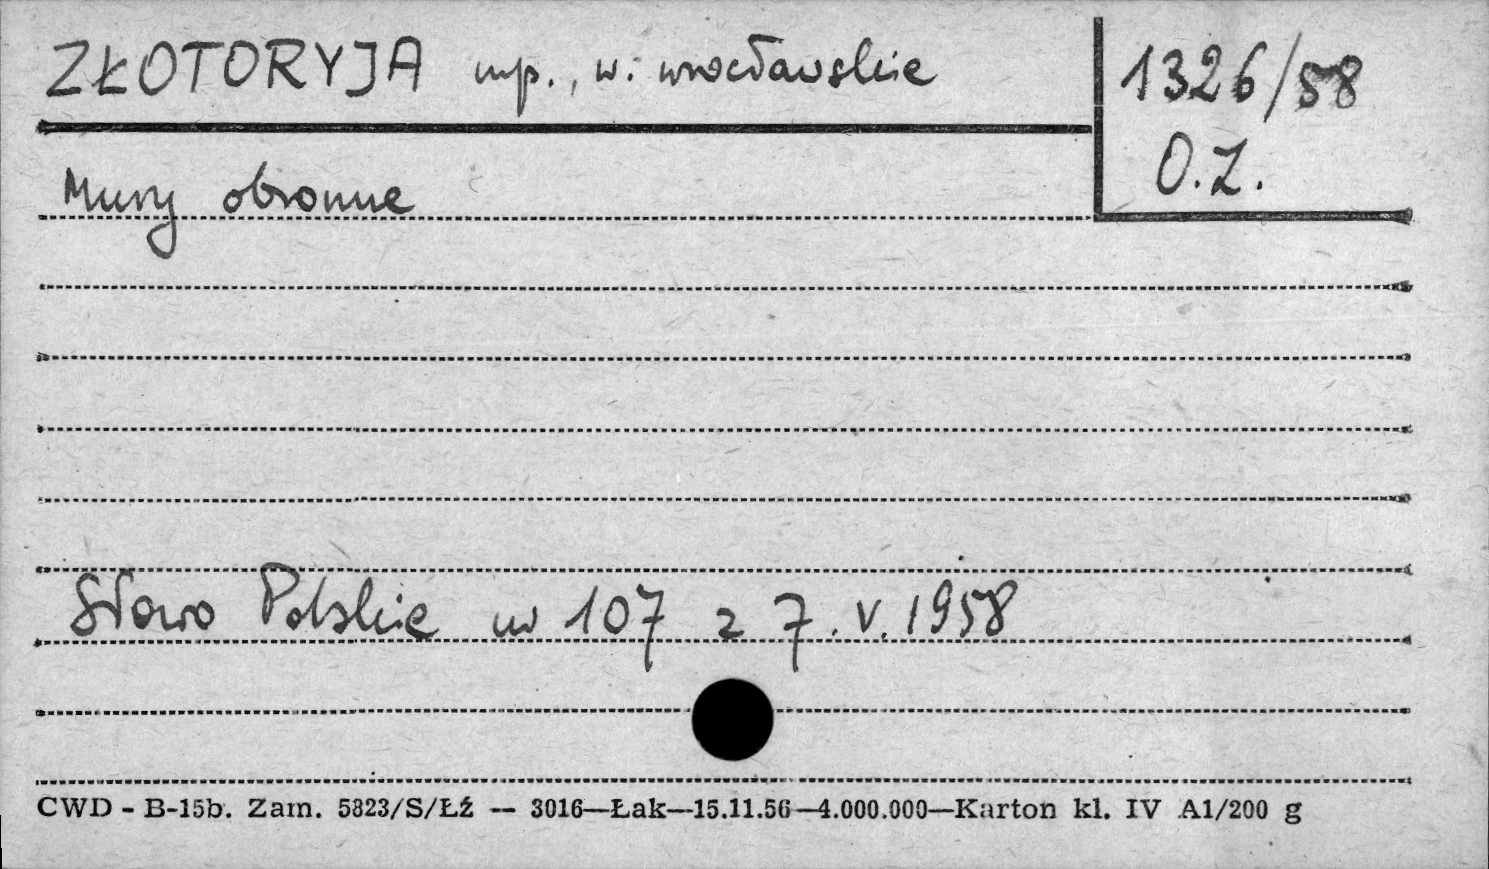 ZŁOTORYJA mp., w. wrocławskie
1326/58
O.Z.
Mury obronne
Słowo Polskie nr 107 z 7.V.1958
CWD - B-15b. Zam. 5823/S/ŁŹ -- 3016—Łak—15.11.56—4.000.000—Karton kl. IV A1/200 g